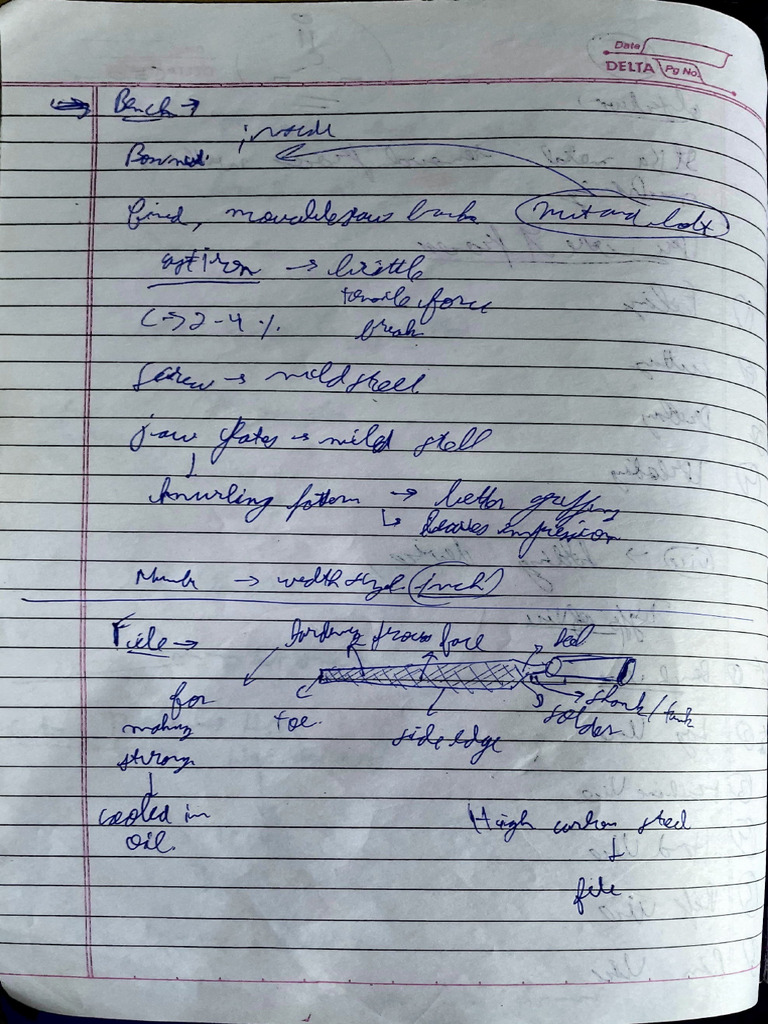 Date
DELTA Pg No.
Bench →
inside
fixed, movable jaws Nut and bolt
cast iron → brittle
tensile force
C → 2-4 % break
Screw → mild steell
jaw plates → mild stell
↓
knurling pattern → better gripping
↳ leaves impression
→ width size (inch)
File → hardening process face heel
for toe side edge solder shank/tank
making
strong
↓
cooled in High carbon steel
oil. ↓
file